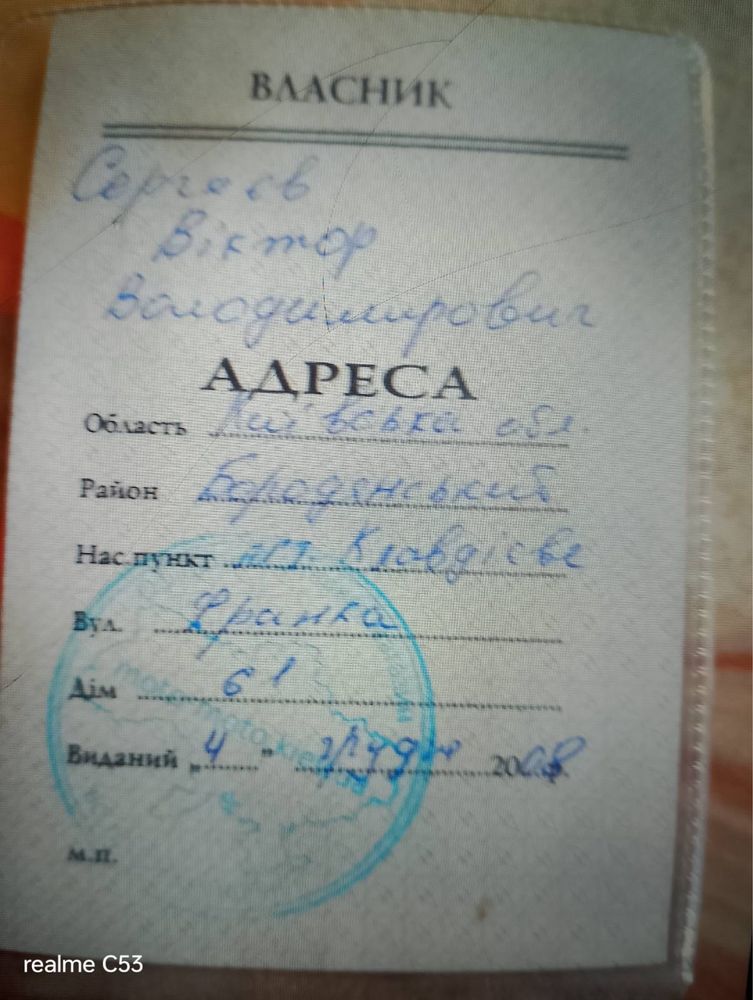 ВЛАСНИК
Сергєєв
Віктор
Володимирович
АДРЕСА
Область Київська обл.
Район Бородянський
Нас.пункт смт. Клавдієве
Вул. Франка
Дім 61
Виданий „4" грудня 2008р.
moto-moto.kiev.ua
м.п.
realme C53